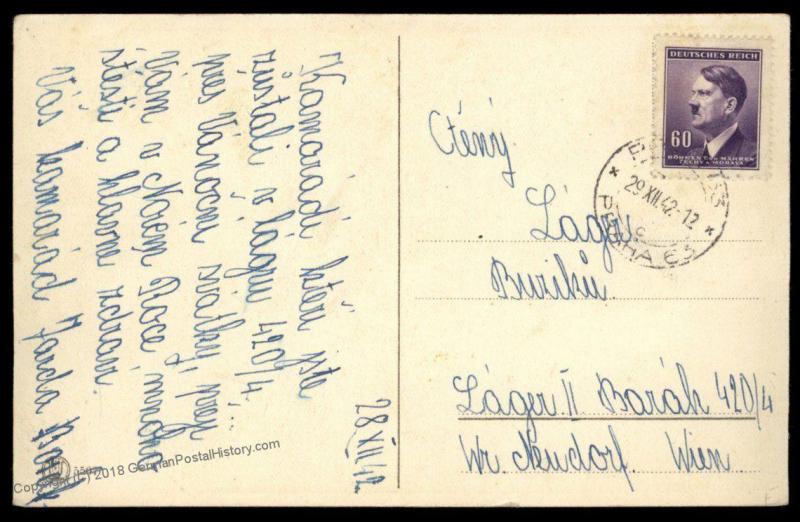 Kamarádi kteří jste
zůstali v lágru 420/4.
přes Vánoční svátky, přeji
Vám v Novém Roce mnoho
štěstí a hlavně zdraví.
Váš kamarád Jarka
28 XII 42.
DEUTSCHES REICH
60
BÖHMEN UND MÄHREN
ČECHY A MORAVA
29 XII. 42-12
PRAHA 63
Ctěný
Lágr
Buriků
Láger II Barák 420/4
Wr. Neudorf. Wien
Copyright (C) 2018 GermanPostalHistory.com